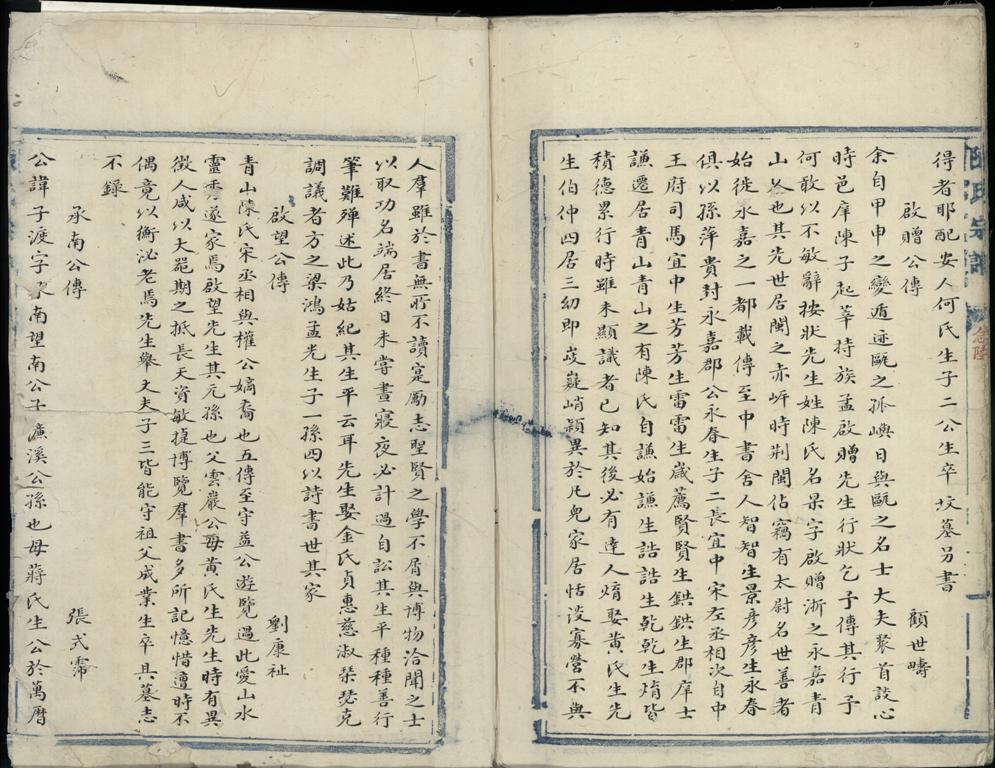 得者耶配安人何氏生子二公生卒坟墓另書
啟贈公傳
顧世疇
余自甲申之變遁迹甌之孤嶼日與甌之名士大夫聚首談心
時邑庠陳子起莘持族孟啟贈先生行狀乞予傳其行予
何敢以不敏辭按狀先生姓陳氏名杲字啟贈浙之永嘉青
山人也其先世居閩之赤岸時荆閩佔竊有太尉名世善者
始徙永嘉之一都載傳至中書舍人智智生景彦彦生永春
俱以孫萍貴封永嘉郡公永春生子二長宜中宋左丞相次自中
王府司馬宜中生芳芳生雷雷生崴薦賢賢生鉷鉷生郡庠士
謙遷居青山青山之有陳氏自謙始謙生誥誥生乾乾生焴皆
積德累行時雖未顯識者已知其後必有達人焴娶黃氏生先
生伯仲四居三幼即岐嶷峭穎異於凡兒家居恬淡寡營不與
人羣雖於書無所不讀寔勵志聖賢之學不屑與博物洽聞之士
以取功名端居終日未嘗晝寢夜必計過自訟其生平種種善行
筆難殫述此乃姑紀其生平云耳先生娶金氏貞惠慈淑琹瑟克
調議者方之梁鴻孟光生子一孫四以詩書世其家
啟望公傳
劉康祉
青山陳氏宋丞相與權公嫡裔也五傳至守益公遊覽過此愛山水
靈秀遂家焉啟望先生其元孫也父雲巖公母黃氏生先生時有異
徵人咸以大器期之抵長天資敏捷博覽羣書多所記憶惜遭時不
偶竟以衡泌老焉先生舉丈夫子三皆能守祖父成業生卒具墓志
不錄
承南公傳
張式霈
公諱子渡字承南望南公子濂溪公孫也母蔣氏生公於萬曆
陳氏宗譜